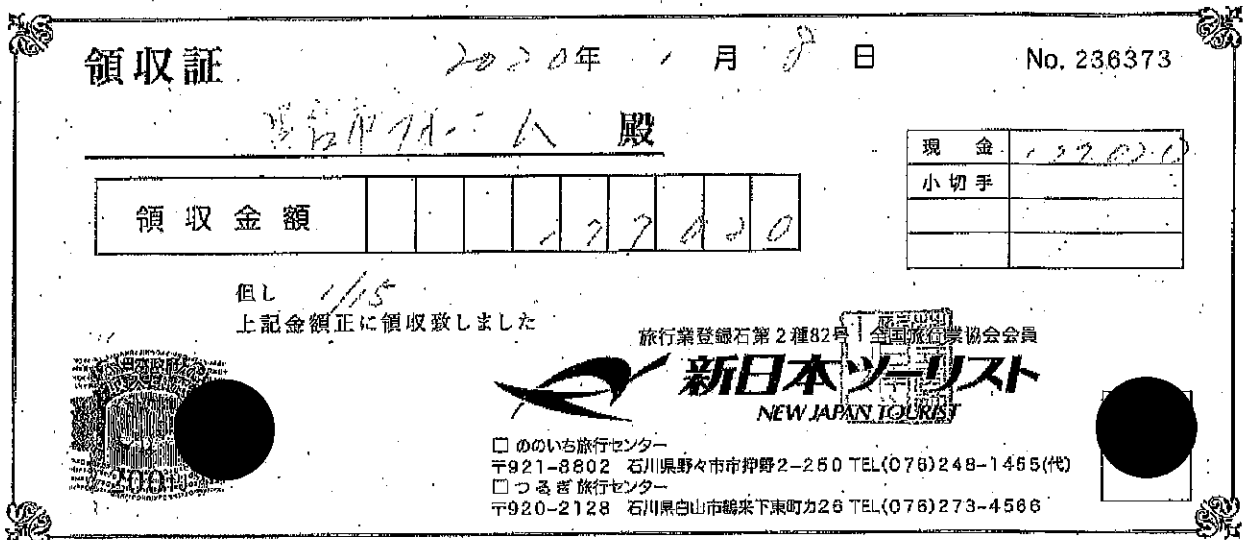 領収証 2020年 1月 8日 No. 236373
殿
現金
小切手
領収金額
但し 1/15
上記金額正に領収致しました
旅行業登録石第2種82号 全国旅行業協会会員
新日本ツーリスト
NEW JAPAN TOURIST
□ ののいち旅行センター
〒921-8802 石川県野々市市押野2-250 TEL(076)248-1455(代)
□ つるぎ旅行センター
〒920-2128 石川県白山市鶴来下東町カ26 TEL(076)273-4566